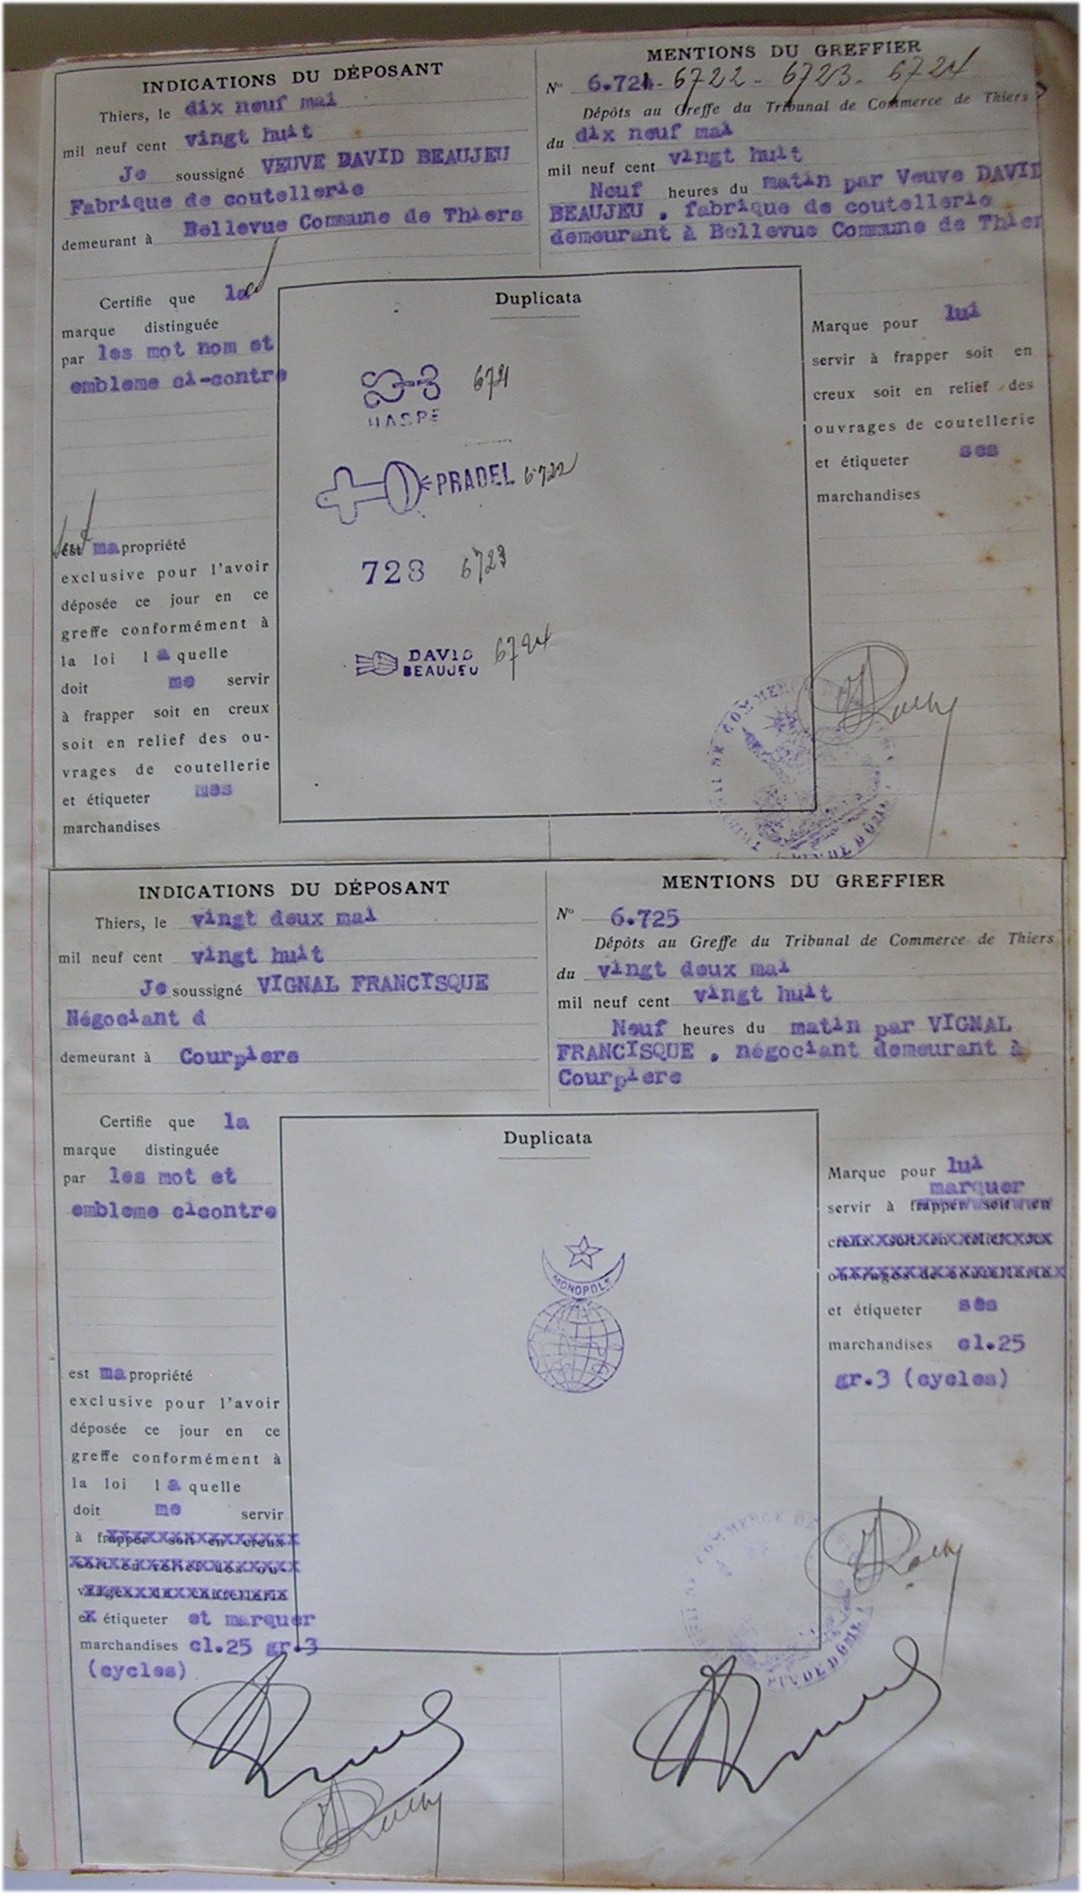 INDICATIONS DU DÉPOSANT
Thiers, le dix neuf mai
mil neuf cent vingt huit
Je soussigné VEUVE DAVID BEAUJEU
Fabrique de coutellerie
demeurant à Bellevue Commune de Thiers
MENTIONS DU GREFFIER
N° 6.721 - 6722 - 6723 - 6724
Dépôts au Greffe du Tribunal de Commerce de Thiers
du dix neuf mai
mil neuf cent vingt huit
Neuf heures du matin par Veuve DAVID
BEAUJEU . fabrique de coutellerie
demeurant à Bellevue Commune de Thier
Certifie que la
marque distinguée
par les mot nom et
embleme ci-contre
est ma propriété
exclusive pour l'avoir
déposée ce jour en ce
greffe conformément à
la loi l a quelle
doit me servir
à frapper soit en creux
soit en relief des ou-
vrages de coutellerie
et étiqueter mes
marchandises
Duplicata
HASPE 6721
PRADEL 6722
728 6723
DAVID 6724
BEAUJEU
Marque pour lui
servir à frapper soit en
creux soit en relief des
ouvrages de coutellerie
et étiqueter ses
marchandises
DE COMMERCE
PUY DE DÔME
INDICATIONS DU DÉPOSANT
Thiers, le vingt deux mai
mil neuf cent vingt huit
Je soussigné VIGNAL FRANCISQUE
Négociant d
demeurant à Courpiere
MENTIONS DU GREFFIER
N° 6.725
Dépôts au Greffe du Tribunal de Commerce de Thiers
du vingt deux mai
mil neuf cent vingt huit
Neuf heures du matin par VIGNAL
FRANCISQUE . négociant demeurant à
Courpiere
Certifie que la
marque distinguée
par les mot et
embleme cicontre
est ma propriété
exclusive pour l'avoir
déposée ce jour en ce
greffe conformément à
la loi l a quelle
doit me servir
à frapper soit en creux
soit en relief des ou-
vrages de coutellerie
et étiqueter et marquer
marchandises cl.25 gr.3
(cycles)
Duplicata
MONOPOLE
Marque pour lui
marquer
servir à frapper soit en
creux soit en relief des
ouvrages de coutellerie
et étiqueter ses
marchandises cl.25
gr.3 (cycles)
COMMERCE DE
PUY DE DÔME